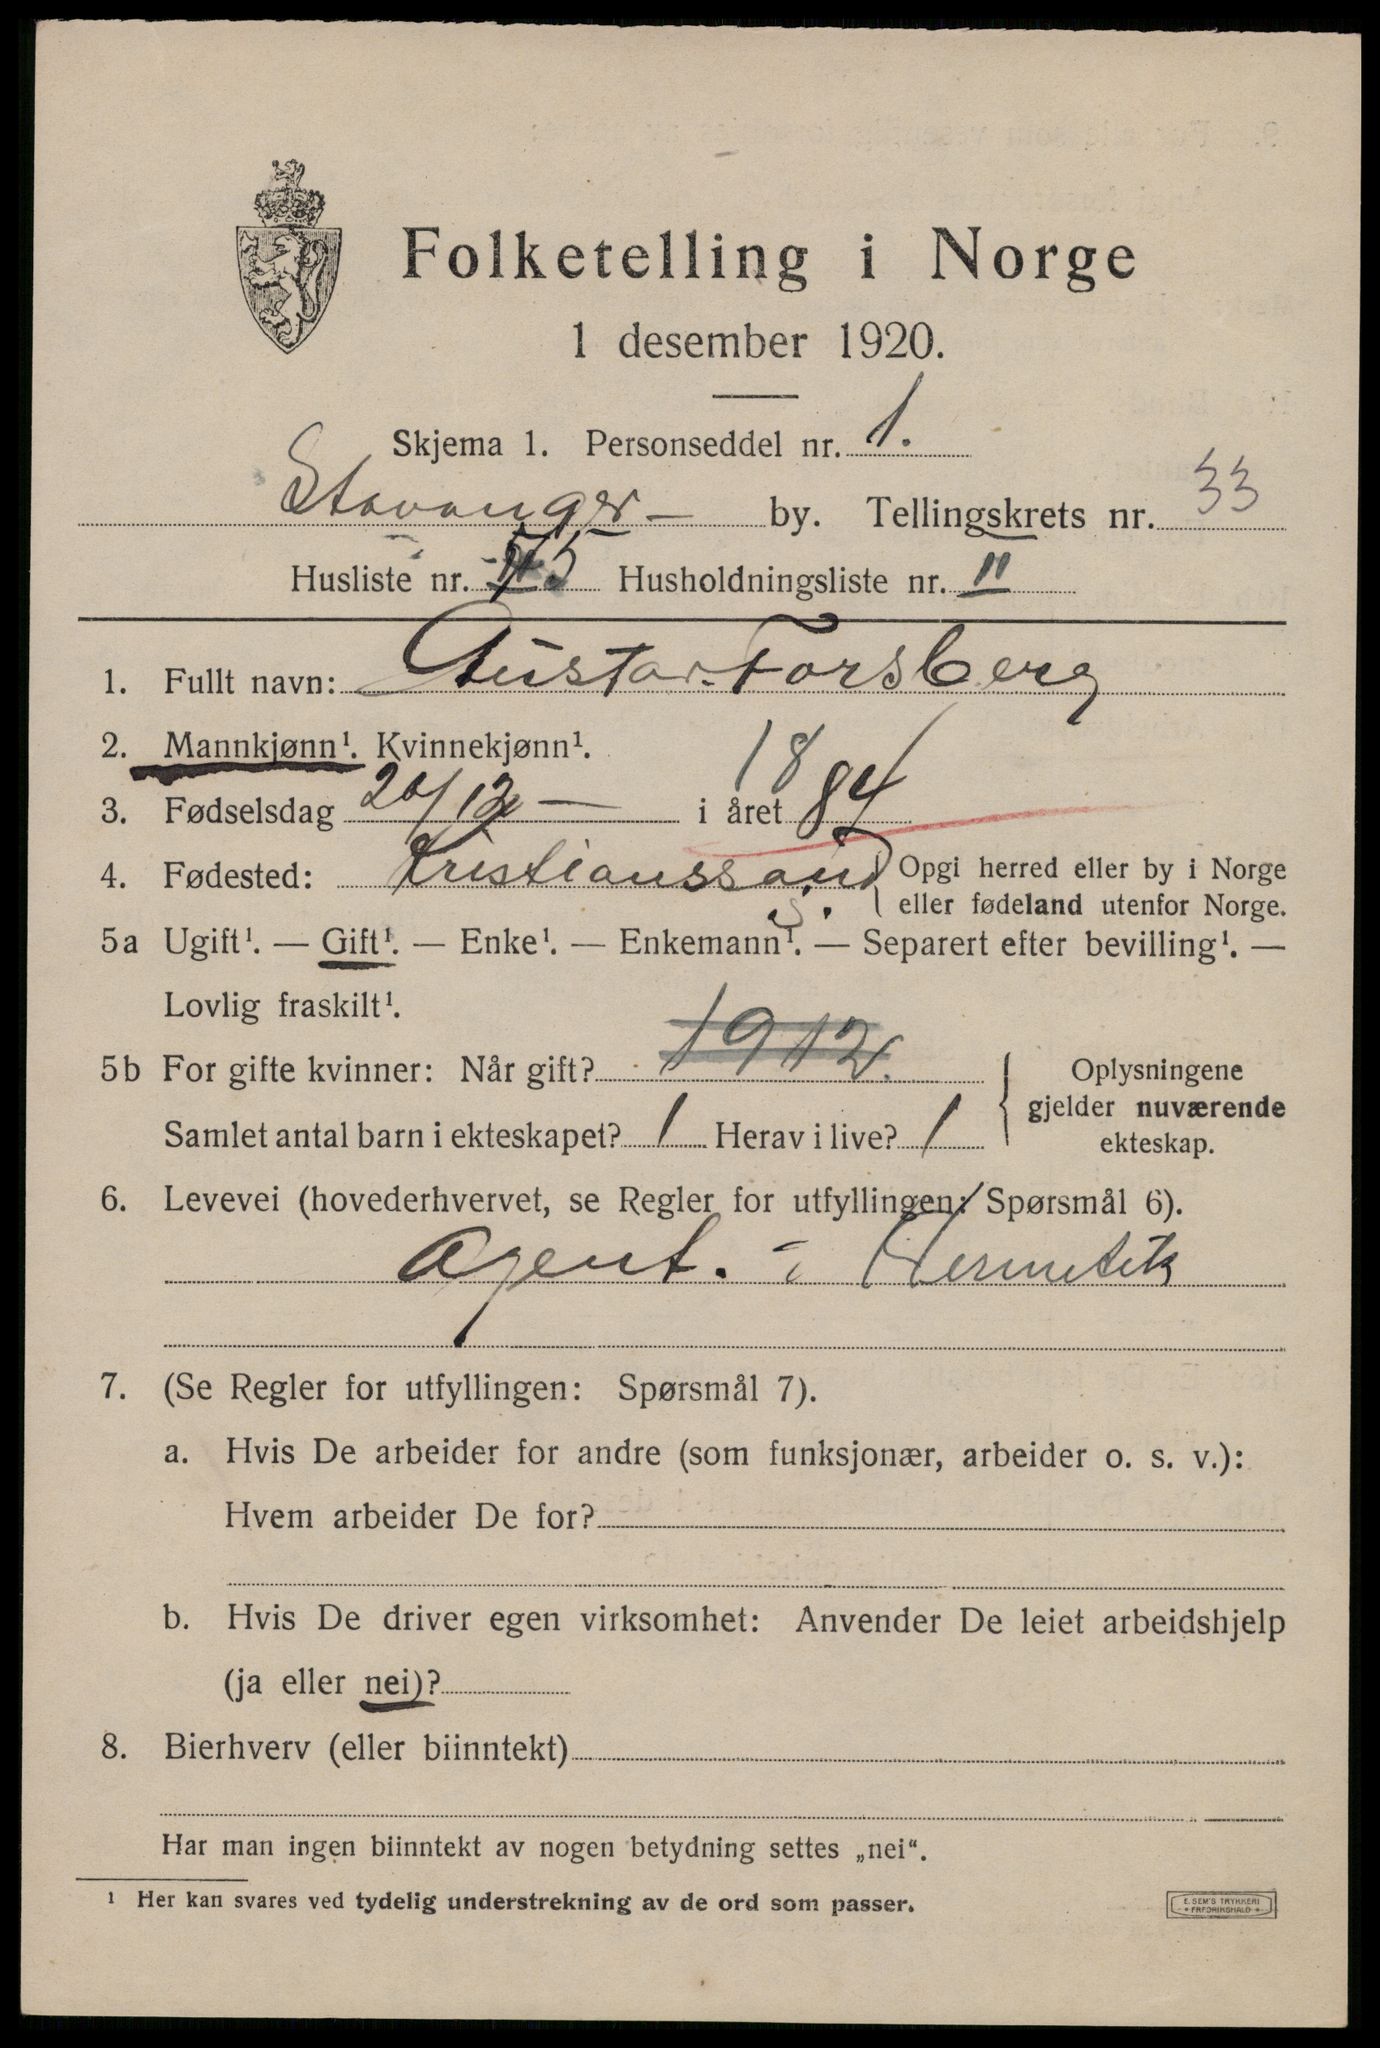 Folketelling i Norge
1 desember 1920.
Skjema 1. Personseddel nr. 1.
Stavanger by. Tellingskrets nr. 33
Husliste nr. Husholdningsliste nr. II
1. Fullt navn: Gustav Forsberg
2. Mannkjønn¹. Kvinnekjønn¹.
3. Fødselsdag i året 1884
4. Fødested: Kristianssand S. Opgi herred eller by i Norge
eller fødeland utenfor Norge.
5a Ugift¹. — Gift¹. — Enke¹. — Enkemann¹. — Separert efter bevilling¹. —
Lovlig fraskilt¹.
5b For gifte kvinner: Når gift? 1912. Oplysningene
gjelder nuværende
Samlet antal barn i ekteskapet? 1 Herav i live? 1
ekteskap.
6. Levevei (hovederhvervet, se Regler for utfyllingen: Spørsmål 6).
Agent. i Hermetik
7. (Se Regler for utfyllingen: Spørsmål 7).
a. Hvis De arbeider for andre (som funksjonær, arbeider o. s. v.):
Hvem arbeider De for?
b. Hvis De driver egen virksomhet: Anvender De leiet arbeidshjelp
(ja eller nei)?
8. Bierhverv (eller biinntekt)
Har man ingen biinntekt av nogen betydning settes „nei“.
¹ Her kan svares ved tydelig understrekning av de ord som passer.
E. SEM'S TRYKKERI
FREDRIKSHALD